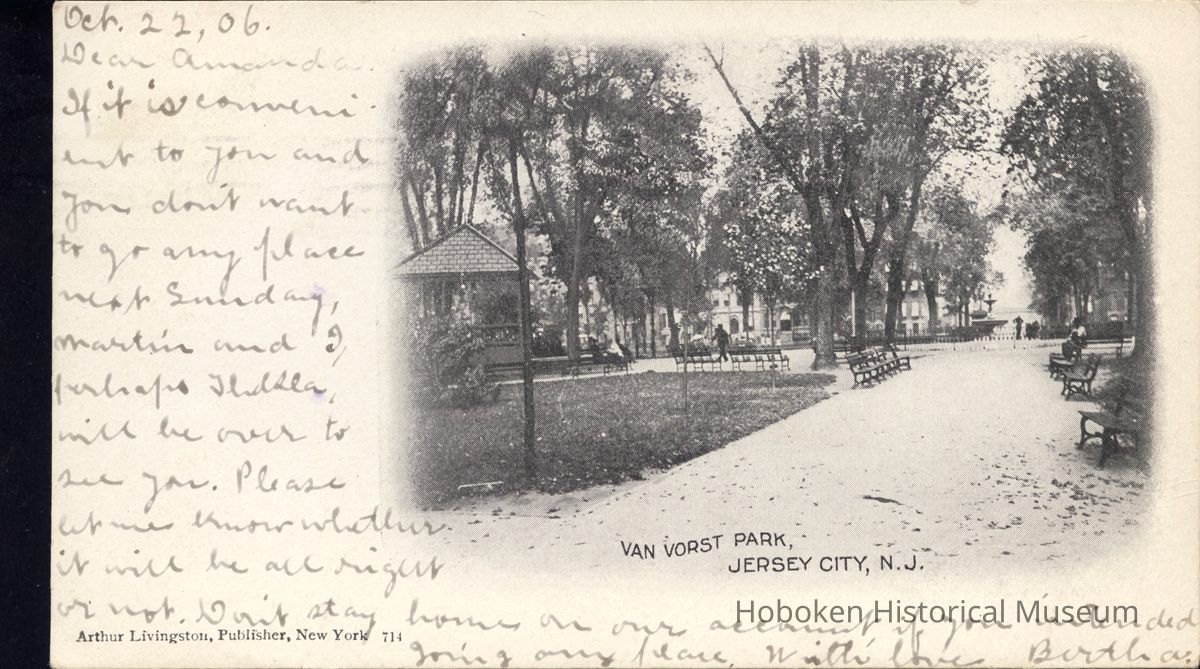 Oct. 22, 06.
Dear Amanda.
If it is conveni
ent to you and
you don't want
to go any place
next Sunday,
Martin and I,
perhaps
will be over to
see you. Please
let me know whether
it will be all right
or not. Don't stay home on our account if you intended
going any place. With love Bertha
VAN VORST PARK,
JERSEY CITY, N.J.
Arthur Livingston, Publisher, New York 714
Hoboken Historical Museum